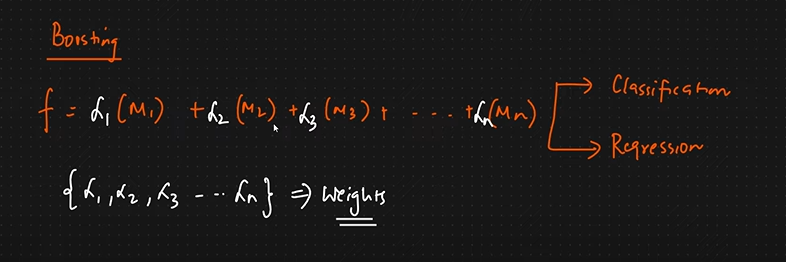 Boosting
f = α₁(M₁) + α₂(M₂) + α₃(M₃) + ... + αₙ(Mₙ)
Classification
Regression
{α₁, α₂, α₃ -- .. αₙ} ⇒ Weights